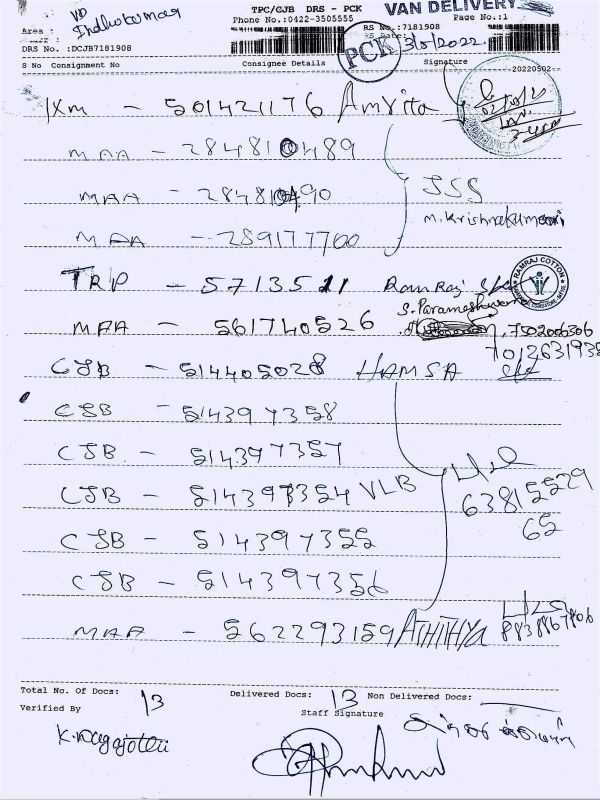 TPC/CJB DRS - PCK VAN DELIVERY
VD
Phone No.:0422-3505555 RS No.:7181908 Page No.:1
Area :
PCK 3/5/2022
DRS No. :DCJB7181908
S No Consignment No Consignee Details Signature 20220502
IXM - 501421176 Amrita
MAA - 284810489
MAA - 284810490 JSS
M. Krishnakumari
MAA - 289177700
TRP - 5713511 Ramraj RAMRAJ COTTON
S. Parameshwaran
MAA - 561740526 7502006306
CJB - 514405028 HAMSA
CJB - 514397358
CJB - 514397357
CJB - 514397354 VLB 6381552965
CJB - 514397355
CJB - 514397356
MAA - 562293159 ATHITHYA 8838867806
Total No. Of Docs: 13 Delivered Docs: 13 Non Delivered Docs:
Verified By Staff Signature